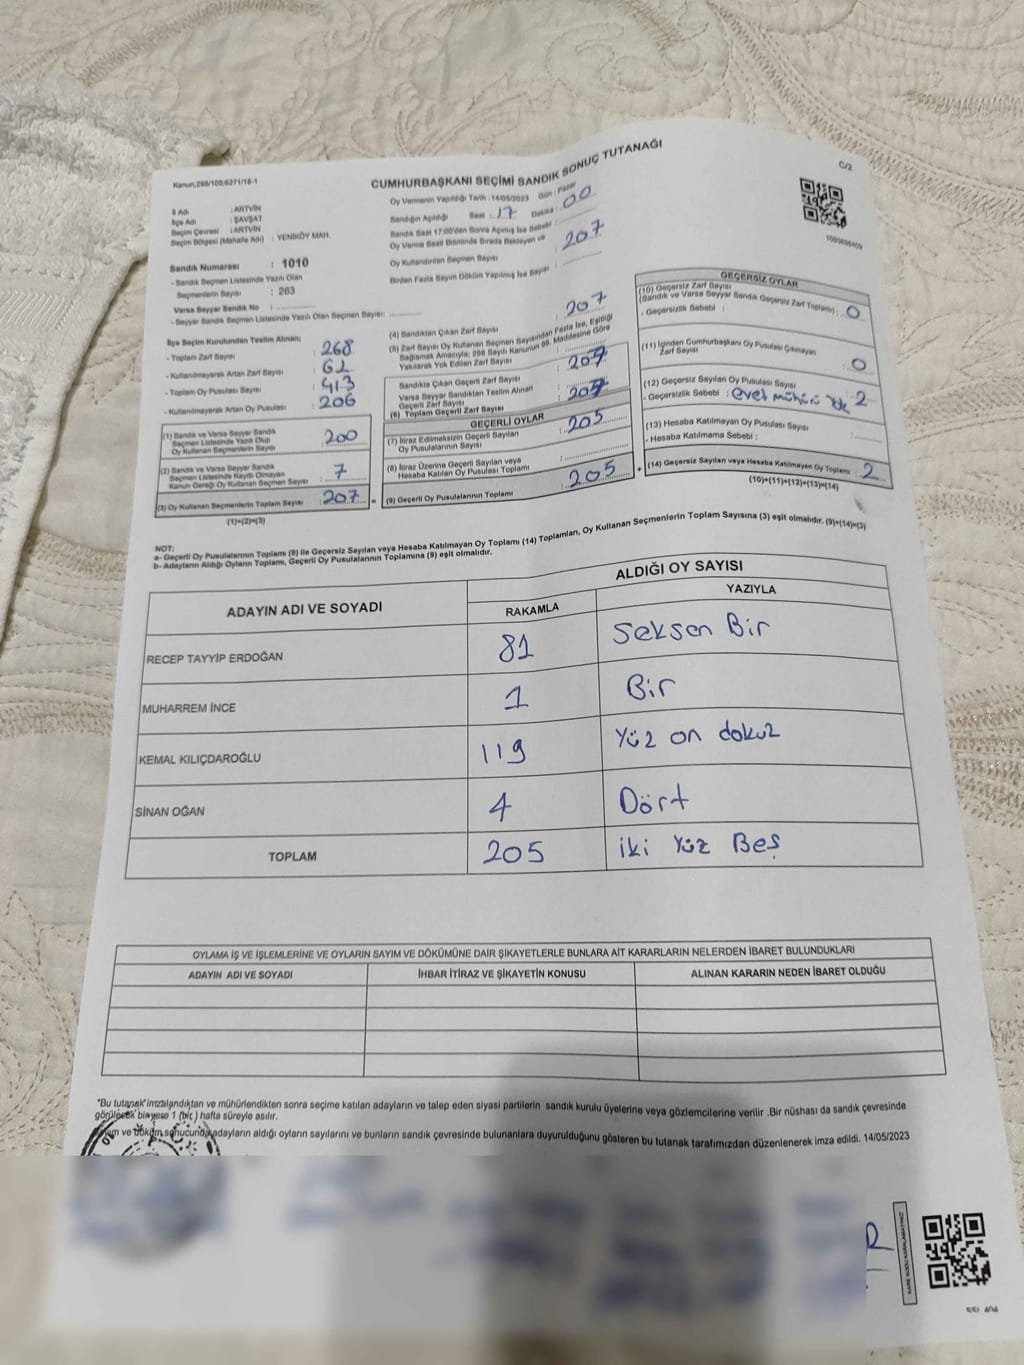 Kanun,298/105;6271/18-1
C/2
CUMHURBAŞKANI SEÇİMİ SANDIK SONUÇ TUTANAĞI
İl Adı : ARTVİN
İlçe Adı : ŞAVŞAT
Seçim Çevresi : ARTVİN
Seçim Bölgesi (Mahalle Adı) : YENİKÖY MAH.
Sandık Numarası : 1010
- Sandık Seçmen Listesinde Yazılı Olan
Seçmenlerin Sayısı : 263
Varsa Seyyar Sandık No :
- Seyyar Sandık Seçmen Listesinde Yazılı Olan Seçmen Sayısı:
Oy Vermenin Yapıldığı Tarih :14/05/2023 Gün : Pazar
Sandığın Açıldığı Saat : 17 Dakika : 00
Sandık Saat 17:00'den Sonra Açılmış İse Sebebi :
Oy Verme Saati Bitiminde Sırada Bekleyen ve
Oy Kullandırılan Seçmen Sayısı : 207
Birden Fazla Sayım Döküm Yapılmış İse Sayısı :
İlçe Seçim Kurulundan Teslim Alınan;
- Toplam Zarf Sayısı : 268
- Kullanılmayarak Artan Zarf Sayısı : 62
- Toplam Oy Pusulası Sayısı : 413
- Kullanılmayarak Artan Oy Pusulası : 206
(1) Sandık ve Varsa Seyyar Sandık
Seçmen Listesinde Yazılı Olup
Oy Kullanan Seçmenlerin Sayısı : 200
(2) Sandık ve Varsa Seyyar Sandık
Seçmen Listesinde Kaydı Olmayan
Kanun Gereği Oy Kullanan Seçmen Sayısı : 7
(3) Oy Kullanan Seçmenlerin Toplam Sayısı : 207
(1)+(2)=(3)
(4) Sandıktan Çıkan Zarf Sayısı : 207
(5) Zarf Sayısı Oy Kullanan Seçmen Sayısından Fazla İse, Eşitliği
Sağlamak Amacıyla; 298 Sayılı Kanunun 98. Maddesine Göre
Yakılarak Yok Edilen Zarf Sayısı :
Sandıkta Çıkan Geçerli Zarf Sayısı : 207
Varsa Seyyar Sandıktan Teslim Alınan
Geçerli Zarf Sayısı :
(6) Toplam Geçerli Zarf Sayısı : 207
GEÇERLİ OYLAR
(7) İtiraz Edilmeksizin Geçerli Sayılan
Oy Pusulalarının Sayısı : 205
(8) İtiraz Üzerine Geçerli Sayılan veya
Hesaba Katılan Oy Pusulası Toplamı :
(9) Geçerli Oy Pusulalarının Toplamı : 205
GEÇERSİZ OYLAR
(10) Geçersiz Zarf Sayısı
(Sandık ve Varsa Seyyar Sandık Geçersiz Zarf Toplamı) : 0
- Geçersizlik Sebebi :
(11) İçinden Cumhurbaşkanı Oy Pusulası Çıkmayan
Zarf Sayısı : 0
(12) Geçersiz Sayılan Oy Pusulası Sayısı : 2
- Geçersizlik Sebebi : evet mühürü yok
(13) Hesaba Katılmayan Oy Pusulası Sayısı :
- Hesaba Katılmama Sebebi :
(14) Geçersiz Sayılan veya Hesaba Katılmayan Oy Toplamı : 2
(10)+(11)+(12)+(13)=(14)
NOT:
a- Geçerli Oy Pusulalarının Toplamı (9) ile Geçersiz Sayılan veya Hesaba Katılmayan Oy Toplamı (14) Toplamları, Oy Kullanan Seçmenlerin Toplam Sayısına (3) eşit olmalıdır. (9)+(14)=(3)
b- Adayların Aldığı Oyların Toplamı, Geçerli Oy Pusulalarının Toplamına (9) eşit olmalıdır.
ADAYIN ADI VE SOYADI
ALDIĞI OY SAYISI
RAKAMLA YAZIYLA
RECEP TAYYİP ERDOĞAN 81 Seksen Bir
MUHARREM İNCE 1 Bir
KEMAL KILIÇDAROĞLU 119 Yüz on dokuz
SİNAN OĞAN 4 Dört
TOPLAM 205 iki Yüz Beş
OYLAMA İŞ VE İŞLEMLERİNE VE OYLARIN SAYIM VE DÖKÜMÜNE DAİR ŞİKAYETLERLE BUNLARA AİT KARARLARIN NELERDEN İBARET BULUNDUKLARI
ADAYIN ADI VE SOYADI İHBAR İTİRAZ VE ŞİKAYETİN KONUSU ALINAN KARARIN NEDEN İBARET OLDUĞU
*Bu tutanak imzalandıktan ve mühürlendikten sonra seçime katılan adayların ve talep eden siyasi partilerin sandık kurulu üyelerine veya gözlemcilerine verilir .Bir nüshası da sandık çevresinde
görülecek bir yere 1 (bir) hafta süreyle asılır.
ve döküm sonucunda adayların aldığı oyların sayılarını ve bunların sandık çevresinde bulunanlara duyurulduğunu gösteren bu tutanak tarafımızdan düzenlenerek imza edildi. 14/05/2023